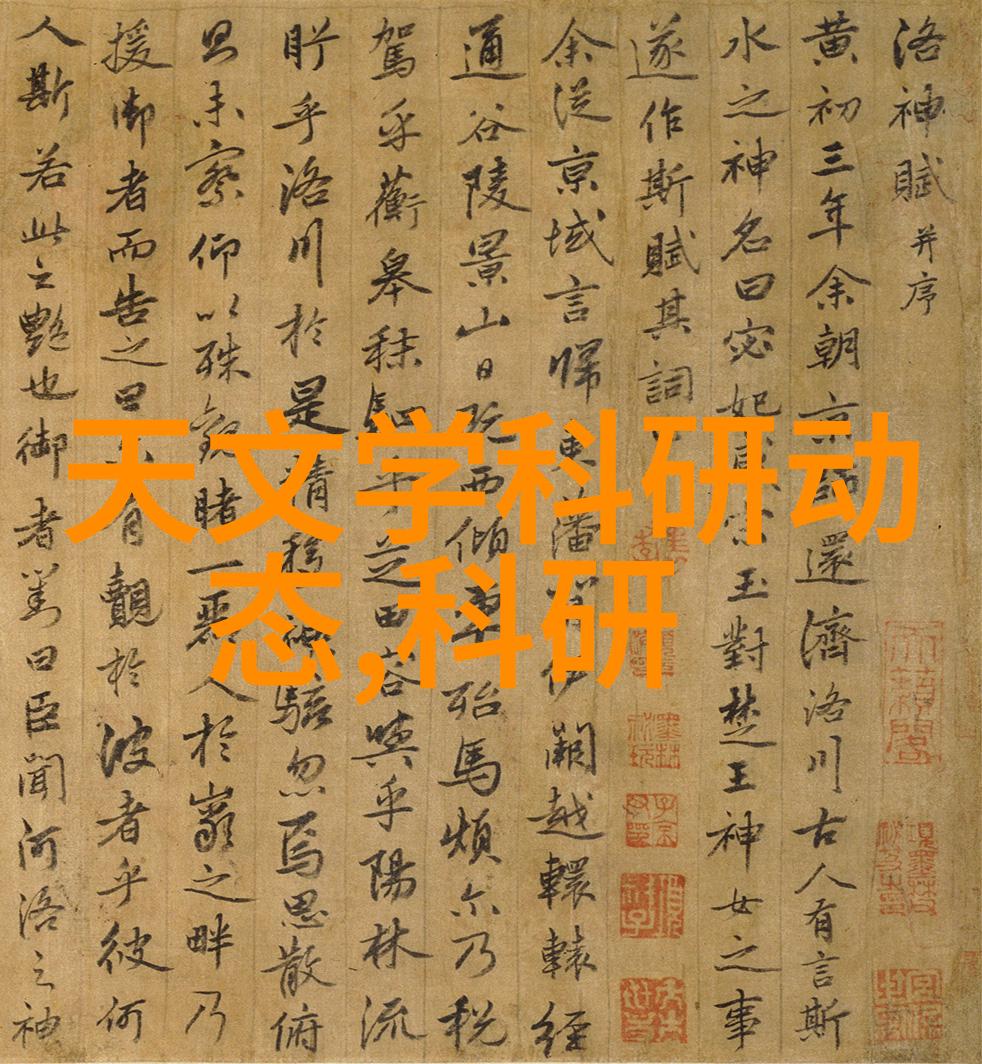 天文学科研动
态,科研
洛神賦并序
黄初三年余朝京師還濟洛川古人有言斯
水之神名曰宓妃宋玉對楚王神女之事
遂作斯賦其詞
余從京域言歸東藩伊闕越轘轅經
通谷陵景山日既西傾車殆馬煩尒乃税
駕乎蘅皋秣駟乎芝田容與乎陽林流
眄乎洛川於是精移神駭忽焉思散俯
則未察仰以殊觀睹一麗人於巖之畔乃
援御者而告之曰有覿於彼者乎彼何
人斯若此之艷也御者對曰臣聞河洛之神